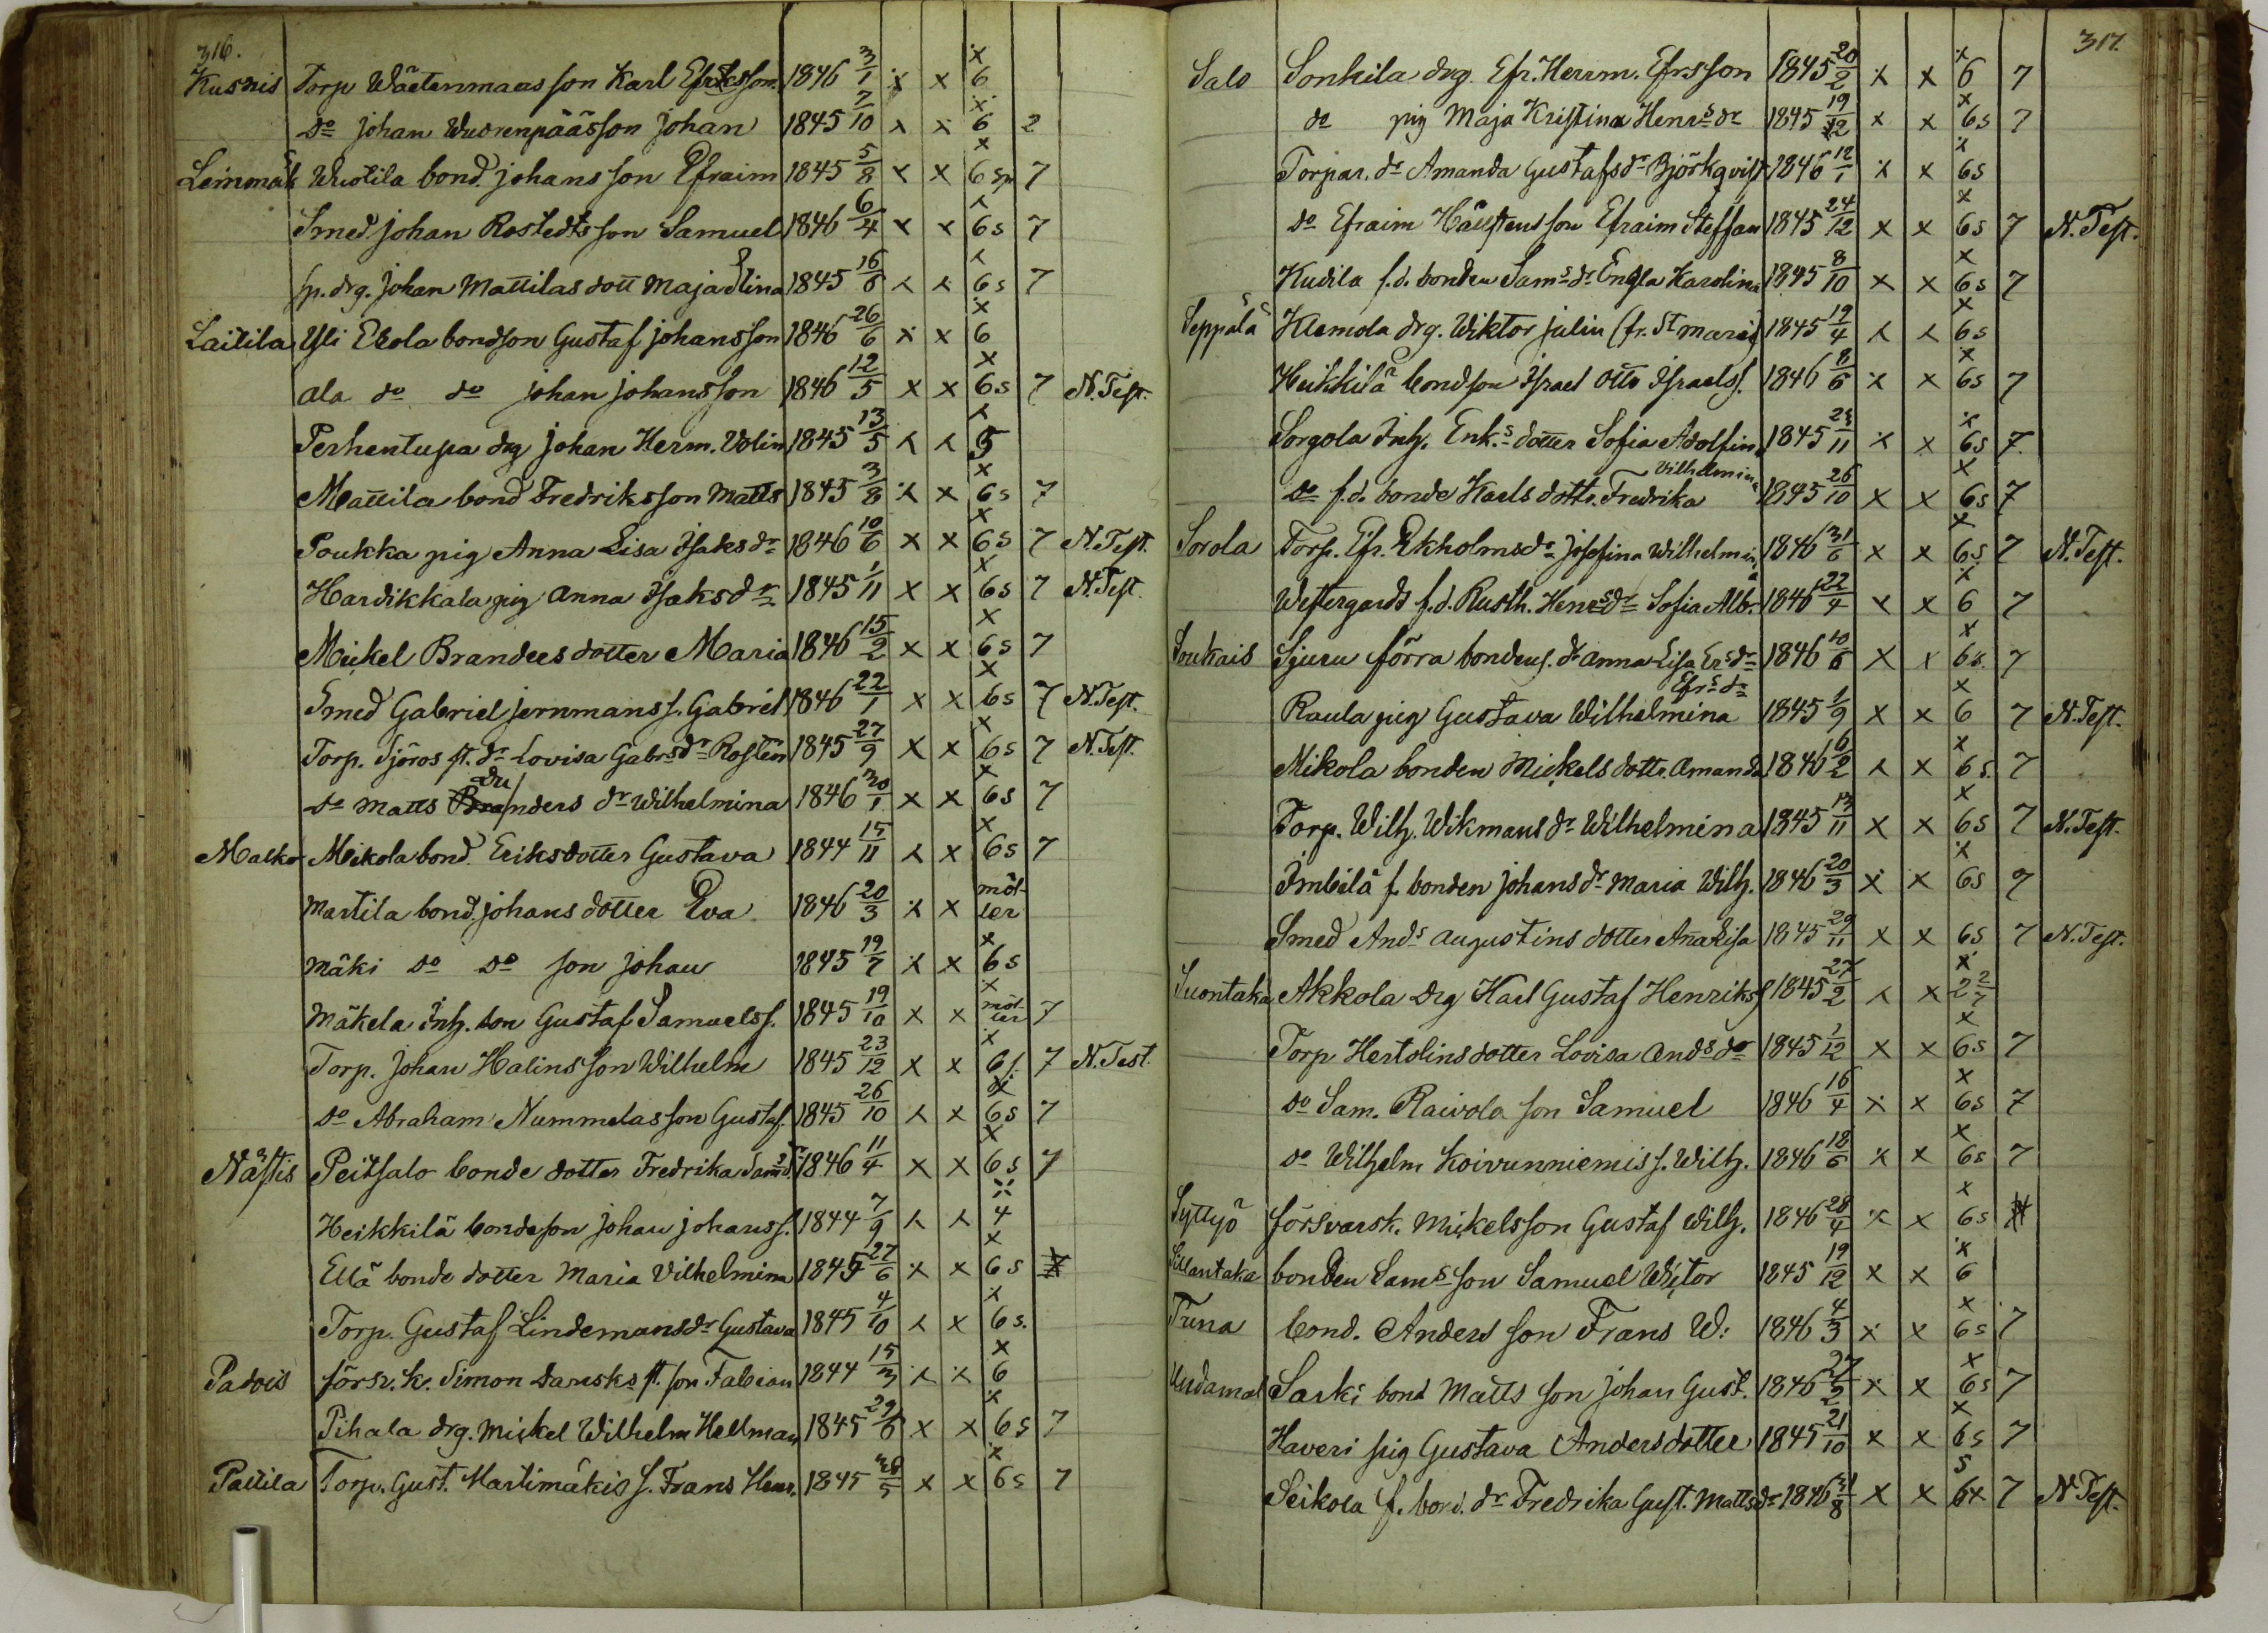 316.
Kusnis Torp Wäätenmaas son Karl Efriksson. 1846 3/1 x x x 6
do johan Wuorenpäässon johan 1845 7/10 x x x 6 2
Leinmäk Wuotila bond. johans son Efraim 1845 5/8 x x x 6 sp 7
Smed johan Rostedts son Samuel 1846 6/4 x x x 6 s 7
sp. drg. johan Mattilas dott Maja Slina 1845 16/6 x x x 6 s 7
Laitila Yli Ekola bondson Gustaf johansson 1846 26/6 x x x 6
Ala do do johan johansson 1846 12/5 x x x 6 s 7 N. Test.
Perhentupa drg johan Herm. Volin 1845 13/5 x x x 5
Mattila bond Fredriksson Matts 1845 3/8 x x x 6 s 7
Poukka pig Anna Lisa Isaksdr 1846 10/6 x x x 6 s 7 N. Test.
Hardikkala pig Anna Isaksdr 1845 1/11 x x x 6 s 7 N. Test.
Mickel Branders dotter Maria 1846 15/2 x x x 6 s 7
Smed Gabriel jernmans s. Gabriel 1846 22/1 x x x 6 s 7 N. Test.
Torp. Sjöros st. dr Lovisa Gabrsdr Rostén 1845 27/9 x x x 6 s 7 N. Test.
do Matts Dru/nders dr Wilhelmina 1846 30/1 x x x 6 s 7
Malko Mikola bond. Eriksdotter Gustava 1844 15/11 x x x 6 s 7
Martila bond. johans dotter Eva 1846 20/3 x x möl-ler
Mäki do do son johan 1845 19/7 x x x 6 s
Mäkelä Inh. son Gustaf Samuelss. 1845 19/10 x x x möl-ler 7
Torp. johan Halins son Wilhelm 1845 23/12 x x x 6 s 7 N. Test.
do Abraham Nummelas son Gustaf. 1845 26/10 x x x 6 s 7
Nästis Peitsalo bonde dotter Fredrika Samsdr 1846 11/4 x x x 6 s 7
Heikkilä bondeson johan johanss. 1844 7/9 x x x 4
Ellä bonde dotter Maria Vilhelmina 1845 27/6 x x x 6 s 7
Torp. Gustaf Lindemansdr Gustava 1845 4/10 x x x 6 s.
Padois försv. k. Simon Darisks st. son Fabian 1844 15/3 x x x 6
Pihala drg. Mickel Wilhelm Hellman 1845 29/6 x x x 6 s 7
Paitila Torp. Gust. Martimäkis s. Frans Henr. 1845 28/5 x x x 6 s 7
317.
Salo Sonkila drg. Efr. Herrm. Efrsson 1845 20/2 x x x 6 7
do pig Maja Kristina Henrsdr 1845 19/12 x x x 6 s 7
Torpar. dr Amanda Gustafsdr Björkqvist 1846 12/1 x x x 6 s
do Efraim Häustens son Efraim Steffan 1845 24/12 x x x 6 s 7 N. Test.
Kudila f. d. bonden Samsdr Engla Karolina 1845 8/10 x x x 6 s 7
Seppälä Klemola drg. Wiktor julin (fr. St Marie) 1845 19/4 x x x 6 s
Heikkilä bondson Israel Otto Israelss. 1846 8/6 x x x 6 s 7
Sorgola Inh. Enk.s dotter Sofia Adolfin. 1845 23/11 x x x 6 s 7.
do f. d. bonde Karls dottr. Fredrika Vilhelmina 1845 26/10 x x x 6 s 7
Sorola Torp. Efr. Ekholmsdr josefina Wilhelmina 1846 31/6 x x x 6 s 7 N. Test.
Westergards f. d. Rusth. Henrsdr Sofia Alb. 1846 22/4 x x x 6 7
Soukais Sjuru förra bondens. dr Anna Lisa Ersdr 1846 10/6 x x x 6 s. 7
Raula pig Gustava Wilhelmina Efrsdr 1845 1/9 x x x 6 7 N. Test.
Mikola bonden Mickels dottr. Amanda 1846 6/2 x x x 6 s. 7
Torp. Wilh. Wikmans dr Wilhelmina 1845 13/11 x x x 6 s 7 N. Test.
Imbilä f. bonden johansdr Maria Wilh. 1846 20/3 x x x 6 s 7
Smed Ands Augustins dotter Anna Lisa 1845 29/11 x x x 6 s 7 N. Test.
Suontaka Akkola drg Karl Gustaf Henrikss 1845 27/2 x x x 2 2/7
Torp Hertolins dotter Lovisa Andsdr 1845 1/12 x x x 6 s 7
do Sam. Raivola son Samuel 1846 16/4 x x x 6 s 7
do Wilhelm Koivunniemis s. Wilh. 1846 18/6 x x x 6 s 7
Syttyö försvarsk. Mickelsson Gustaf Wilh. 1846 28/4 x x x 6 s
Sillantaka bonden Sams son Samuel Wictor 1845 19/12 x x x 6
Truna bond. Anders son Frans W: 1846 4/3 x x x 6 s 7
Undamal Sarki bond Matts son johan Gust. 1846 27/2 x x x 6 s 7
Haveri pig Gustava Andersdotter 1845 21/10 x x x 6 s 7
Seikola f. bond. dr Fredrika Gust. Mattsdr 1846 31/8 x x s 6 x 7 N. Test.